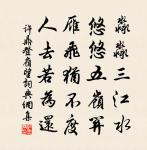 淼淼三江水
悠悠五嶺關
雁飛猶不度
人去若為還
許鼎登嶺望詞典網集